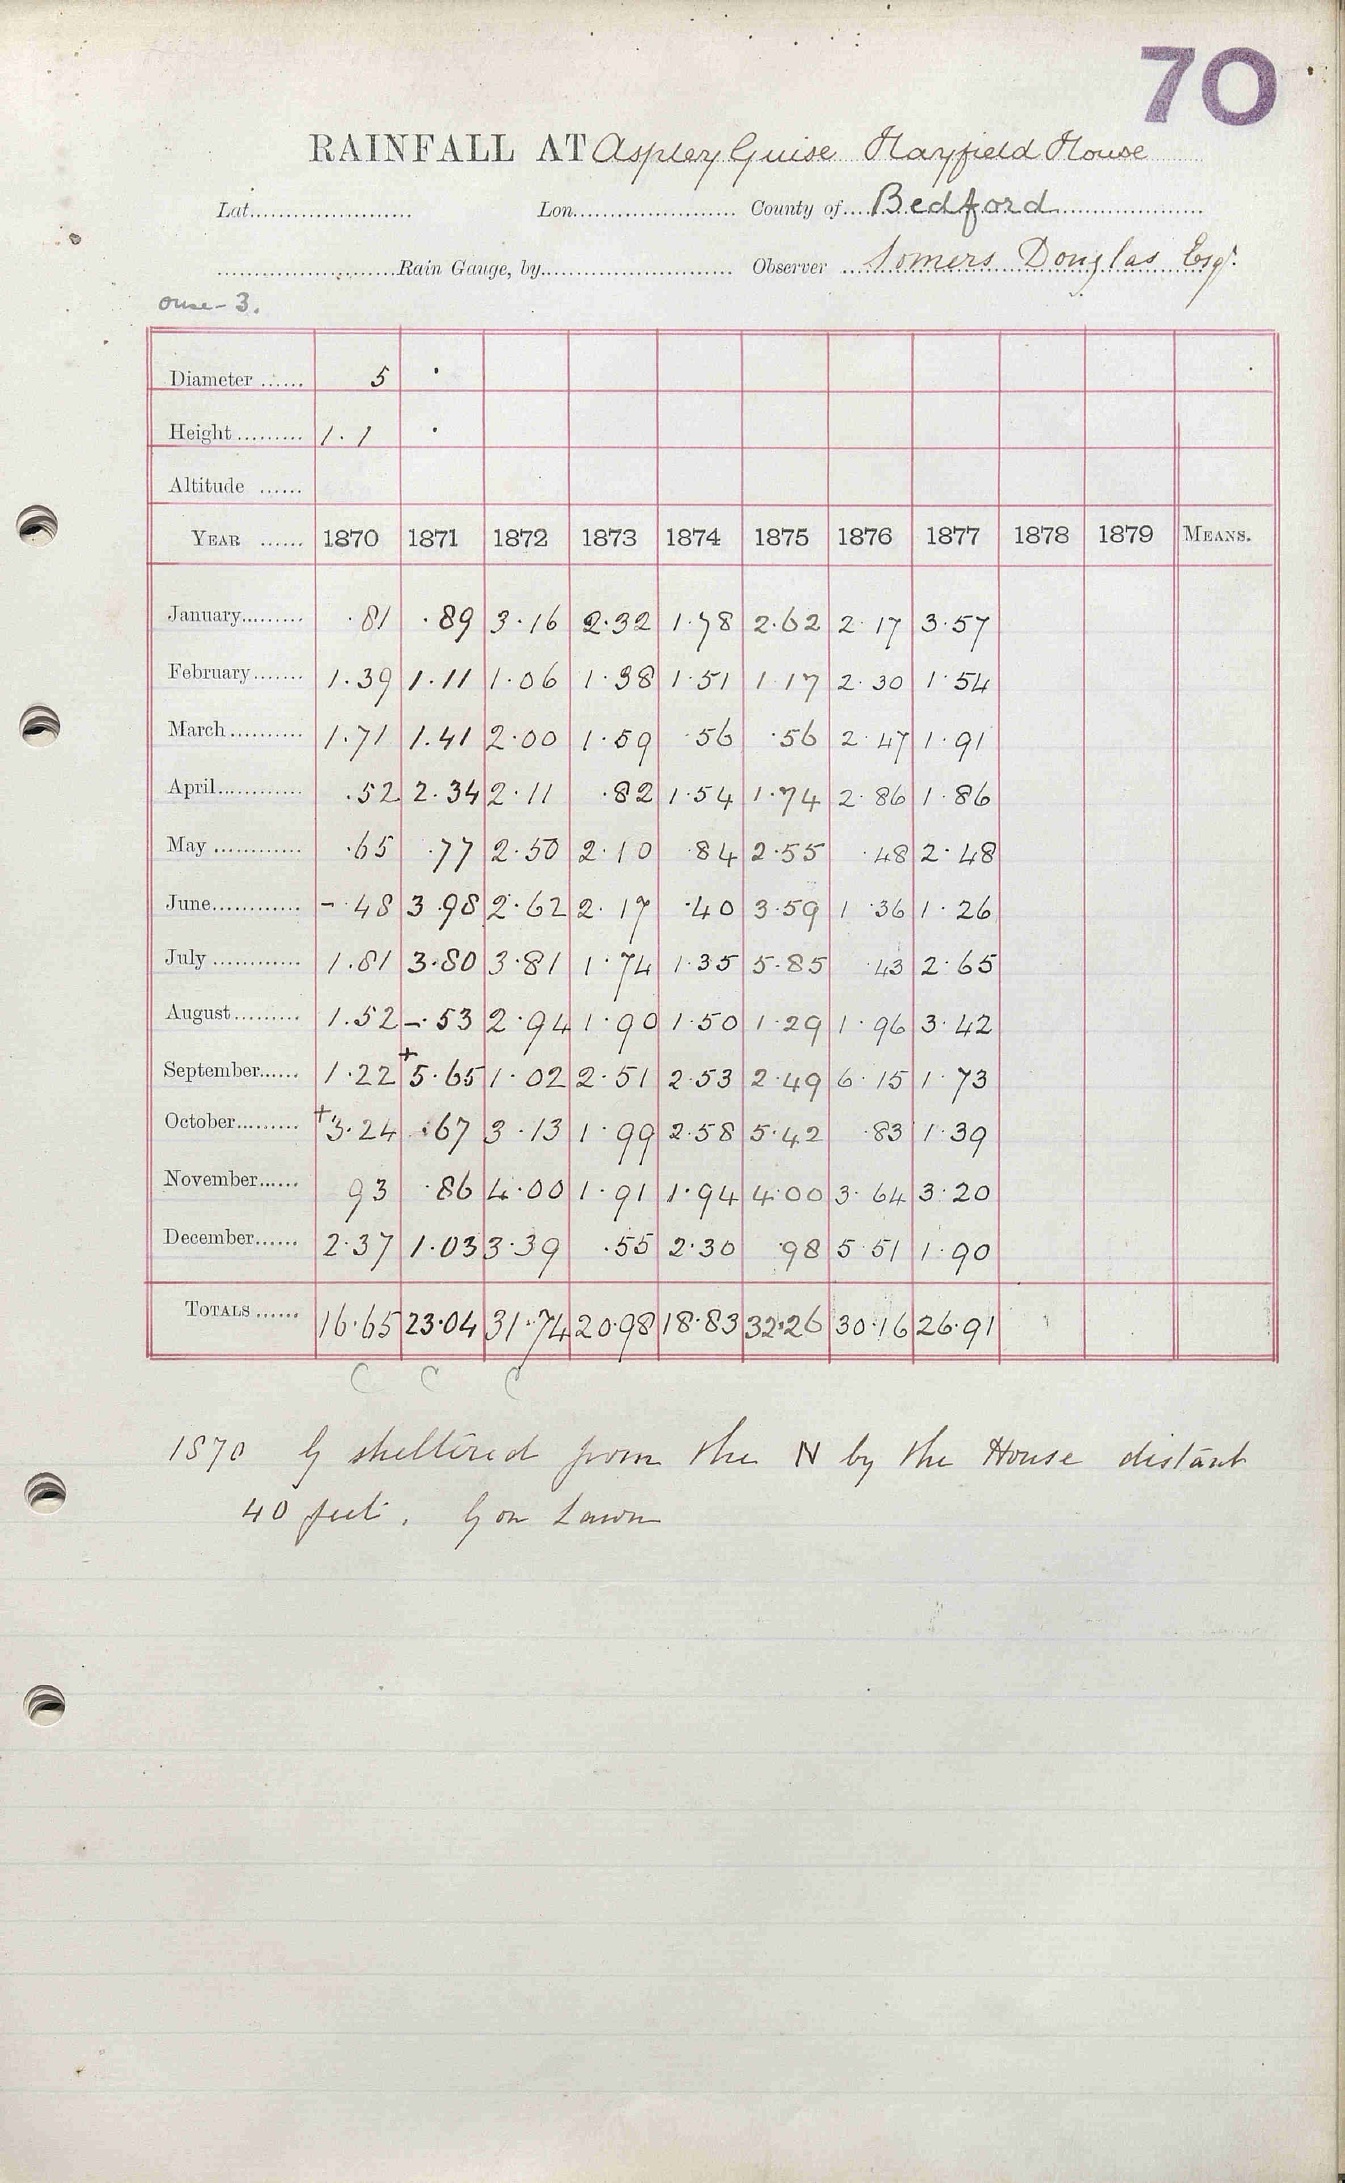 70
RAINFALL AT Aspley Guise Hayfield House
Lat. Lon. County of Bedford
Rain Gauge, by Observer Somers Douglas Esqr.
Ouse - 3.
Diameter 5 ·
Height 1·1 ·
Altitude
YEAR 1870 1871 1872 1873 1874 1875 1876 1877 1878 1879 MEANS.
January ·81 ·89 3·16 2·32 1·78 2·62 2·17 3·57
February 1·39 1·11 1·06 1·38 1·51 1·17 2·30 1·54
March 1·71 1·41 2·00 1·59 ·56 ·56 2·47 1·91
April ·52 2·34 2·11 ·82 1·54 1·74 2·86 1·86
May ·65 ·77 2·50 2·10 ·84 2·55 ·48 2·48
June - ·48 3·98 2·62 2·17 ·40 3·59 1·36 1·26
July 1·81 3·80 3·81 1·74 1·35 5·85 ·43 2·65
August 1·52 - ·53 2·94 1·90 1·50 1·29 1·96 3·42
September 1·22 +5·65 1·02 2·51 2·53 2·49 6·15 1·73
October +3·24 ·67 3·13 1·99 2·58 5·42 ·83 1·39
November 93 ·86 4·00 1·91 1·94 4·00 3·64 3·20
December 2·37 1·03 3·39 ·55 2·30 ·98 5·51 1·90
TOTALS 16·65 23·04 31·74 20·98 18·83 32·26 30·16 26·91
C C C
1870 G sheltered from the N by the House distant
40 feet. G on Lawn